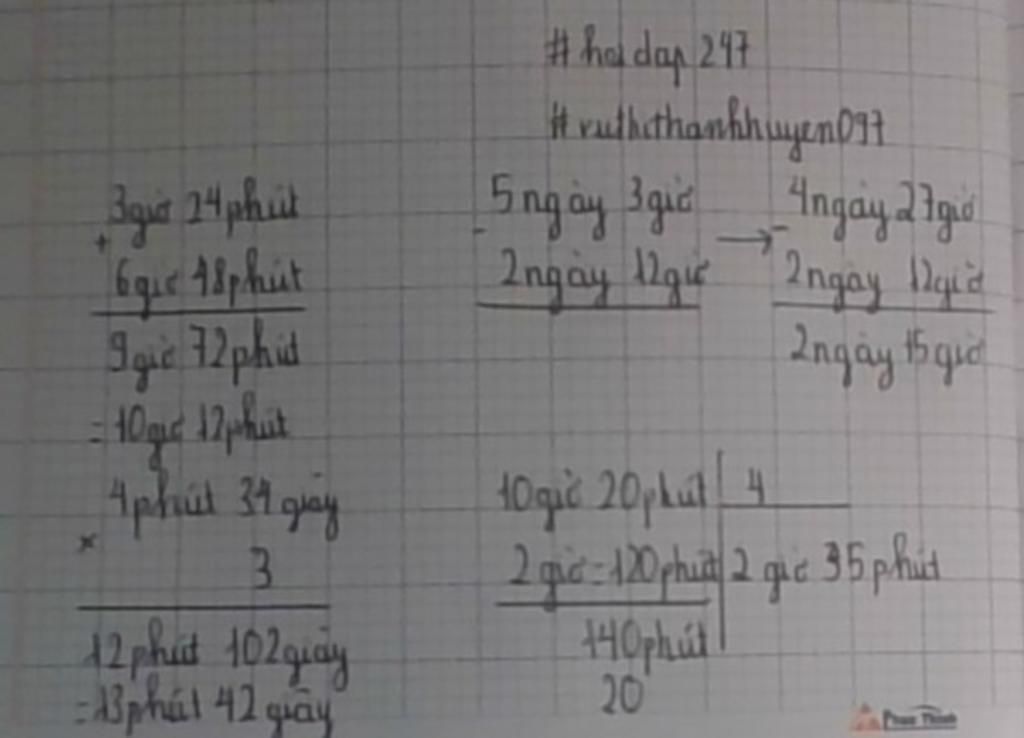 #hoidap247
#vuthithanhhuyen097
3giờ 24phút
+
6giờ 48phút
9giờ 72phút
=10giờ 12phút
5ngày 3giờ
-
2ngày 12giờ
→
4ngày 27giờ
-
2ngày 12giờ
2ngày 15giờ
4phút 34giây
×
3
12phút 102giây
=13phút 42giây
10giờ 20phút 4
2giờ=120phút 2giờ 35phút
140phút
20